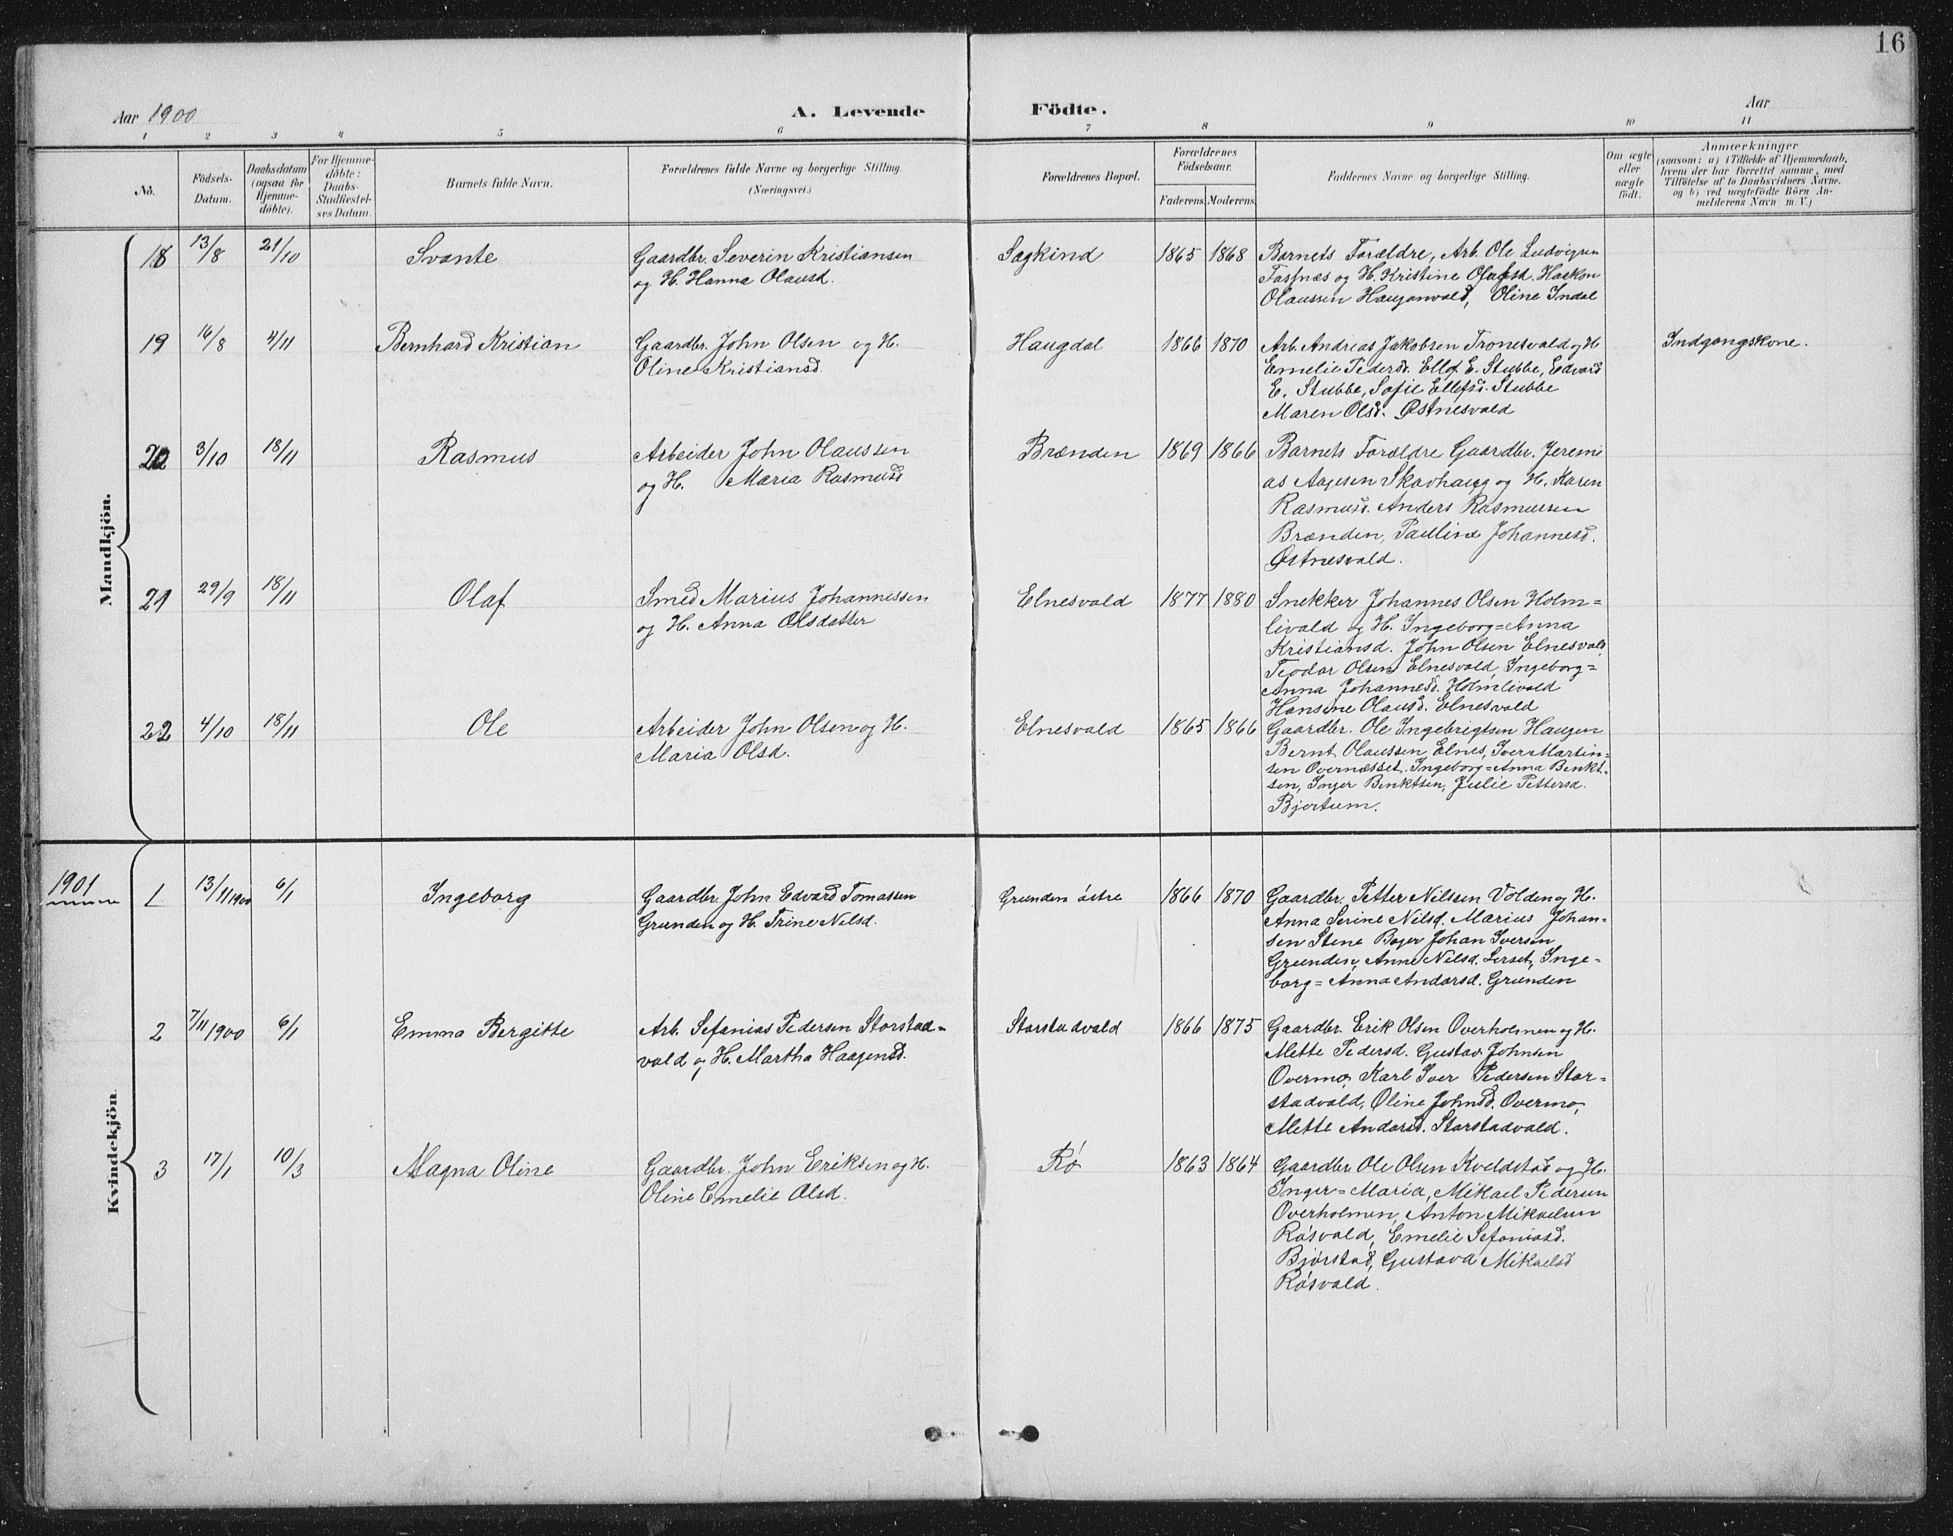 16
Aar 1900 A. Levende Födte. Aar
1 2 3 4 5 6 7 8 9 10 11
No.
Födsels-
Datum.
Daabsdatum
(ogsaa for
Hjemme-
döbte).
For Hjemme-
döbte:
Daabs-
Stadfæstel-
ses Datum.
Barnets fulde Navn.
Forældrenes fulde Navne og borgerlige Stilling.
(Næringsvei.)
Forældrenes Bopæl.
Forældrenes
Födselsaar.
Faderens. Moderens.
Faddernes Navne og borgerlige Stilling.
Om ægte
eller
uægte
födt.
Anmærkninger
(saasom: a) i Tilfælde af Hjemmedaab,
hvem der har forrettet samme, med
Tilföielse af to Daabsvidners Navne,
og b) ved uægtefödte Börn An-
melderens Navn m. V.)
Mandkjön.
18 13/8 21/10 Svante
Gaardbr. Severin Kristiansen
og H. Hanna Olausd.
Sagkind 1865 1868
Barnets Forældre, Arb. Ole Ludvigsen
og H. Kristine Olufsd. Haakon
Olaussen Hauganvald, Oline Indal
19 16/8 4/11 Bernhard Kristian
Gaardbr. John Olsen og H.
Oline Kristiansd.
Haugdal 1866 1870
Arb. Andreas Jakobsen Tronesvald og H
Emelie Pedersd. Ellef E. Stubbe, Edvard
E. Stubbe, Sofie Ellefsd. Stubbe
Maren Olsd. Østnesvald
Indgangskone.
20 3/10 18/11 Rasmus
Arbeider John Olaussen
og H. Maria Rasmusd
Brænden 1869 1866
Barnets Forældre Gaardbr. Jeremi
as Aagesen Skavhaug og H. Karen
Rasmusd. Anders Rasmussen
Brænden, Pauline Johannesd.
Østnesvald.
21 29/9 18/11 Olaf
Smed Marius Johannessen
og H. Anna Olsdatter
Elnesvald 1877 1880
Snekker Johannes Olsen Holm=
livald og H. Ingeborg=Anna
Kristiansd. John Olsen Elnesvald
Teodor Olsen Elnesvald, Ingeborg=
Anna Johannesd. Holmlivald
Hansine Olausd. Elnesvald
22 4/10 18/11 Ole
Arbeider John Olsen og H.
Maria Olsd.
Elnesvald 1865 1866
Gaardbr. Ole Ingebrigtsen Haugen
Bernt Olaussen Elnes, Iver Martin-
sen Overnæsset. Ingeborg=Anna Binkt-
sen, Inger Binktsen, Julie Pettersd.
Bjartum.
Kvindekjön.
1901
1 13/11 1900 6/1 Ingeborg
Gaardbr. John Edvard Tomassen
Grunden og H. Trine Nilsd.
Grunden östre 1866 1870
Gaardbr. Petter Nilsen Volden og H.
Anna Serine Nilsd. Marius Johan-
sen Stene Johan Iversen
Grunden, Anne Nilsd. Lerset, Inge-
borg=Anna Andersd. Grunden
2 7/11 1900 6/1 Emma Bergitte
Arb. Sefanias Pedersen Storstad-
vald og H. Martha Haagensd.
Storstadvald 1866 1875
Gaardbr. Erik Olsen Overholmen og H.
Mette Pedersd. Gustav Johnsen
Overmo, Karl Iver Pedersen Stor-
stadvald, Oline Johnsd. Overmo,
Mette Andersd. Storstadvald.
3 17/1 10/3 Magna Oline
Gaardbr. John Eriksen og H.
Oline Emelie Olsd.
Rø 1863 1864
Gaardbr. Ole Olsen Kveldstad og H.
Inger=Maria, Mikael Pedersen
Overholmen, Anton Mikaelsen
Røsvald, Emelie Sefaniasd.
Bjørstad, Gustava Mikaelsd
Røsvald.